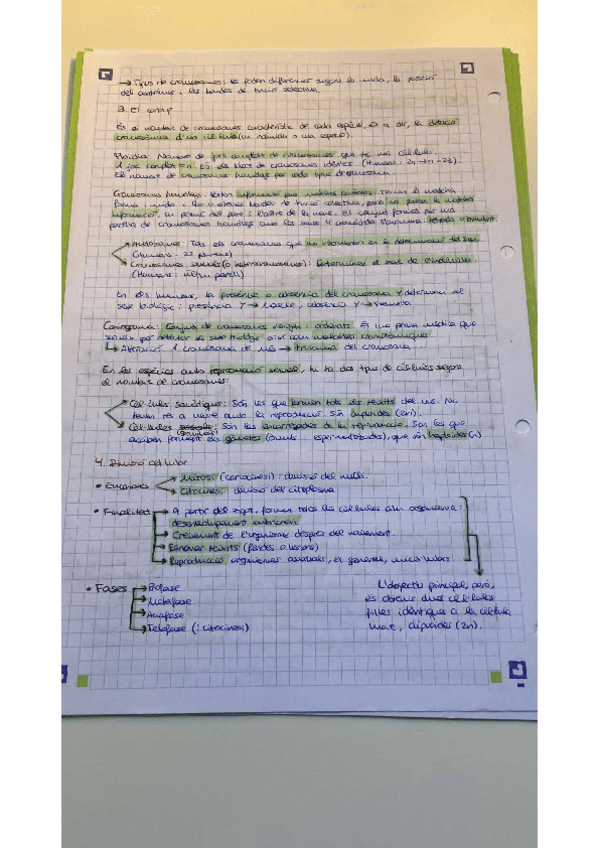 → Tipus de cromosomes: es poden diferenciar segons la mida, la posició
del centròmer i les bandes de tinció selectiva.
3. El cariotip
És el nombre de cromosomes característic de cada espècie, és a dir, la dotació
cromosòmica d'una cèl·lula (un individu o una espècie).
Ploïdia: Nombre de jocs complets de cromosomes que té una cèl·lula.
1 joc complet = n. És els tipus de cromosomes idèntics (Humans: 2n → n = 23).
El nombre de cromosomes homòlegs per cada tipus d'organisme.
Cromosomes homòlegs: tenen informació pels mateixos caràcters. Tenen la mateixa
forma i mida i les mateixes bandes de tinció selectiva, però no porten la mateixa
informació, un prové del pare i l'altre de la mare. El conjunt format per una
parella de cromosomes homòlegs amb les seves 4 cromàtides s'anomena: tètrada o bivalent.
Autosomes: Tots els cromosomes que no intervenen en la determinació del sexe
(Humans: 22 parelles)
Cromosomes sexuals (o heterocromosomes): Determinen el sexe de l'individu.
(Humans: última parell)
En els humans, la presència o absència del cromosoma Y determina el
sexe biològic: presència Y → Mascle, absència Y → Femella
Cariograma: Conjunt de cromosomes reunits i ordenats. És una prova mèdica que
serveix per detectar el sexe biològic així com malalties cromosòmiques.
↳ Alteració 1 cromosoma de més → trisomia del cromosoma...
En les espècies amb reproducció sexual, hi ha dos tipus de cèl·lules segons
el nombre de cromosomes:
Cèl·lules somàtiques: Són les que formen tots els teixits del cos. No
tenen res a veure amb la reproducció. Són diploides (2n).
Cèl·lules sexuals: Són les encarregades de la reproducció. Són les que
acaben formant els gàmetes (òvuls i espermatozoides), que són haploides (n).
4. Divisió cel·lular
• Engloba → Mitosi (cariocinesi): divisió del nucli.
→ Citocinesi: divisió del citoplasma
• Finalitat → A partir del zigot, formen totes les cèl·lules d'un organisme:
desenvolupament embrionari.
→ Creixement de l'organisme després del naixement.
→ Renovar teixits (ferides o lesions)
→ Reproducció organismes asexuals, en general, unicel·lulars
• Fases → Profase
→ Metafase
→ Anafase
→ Telofase (i citocinesi)
L'objectiu principal, però,
és obtenir dues cèl·lules
filles idèntiques a la cèl·lula
mare, diploides (2n).